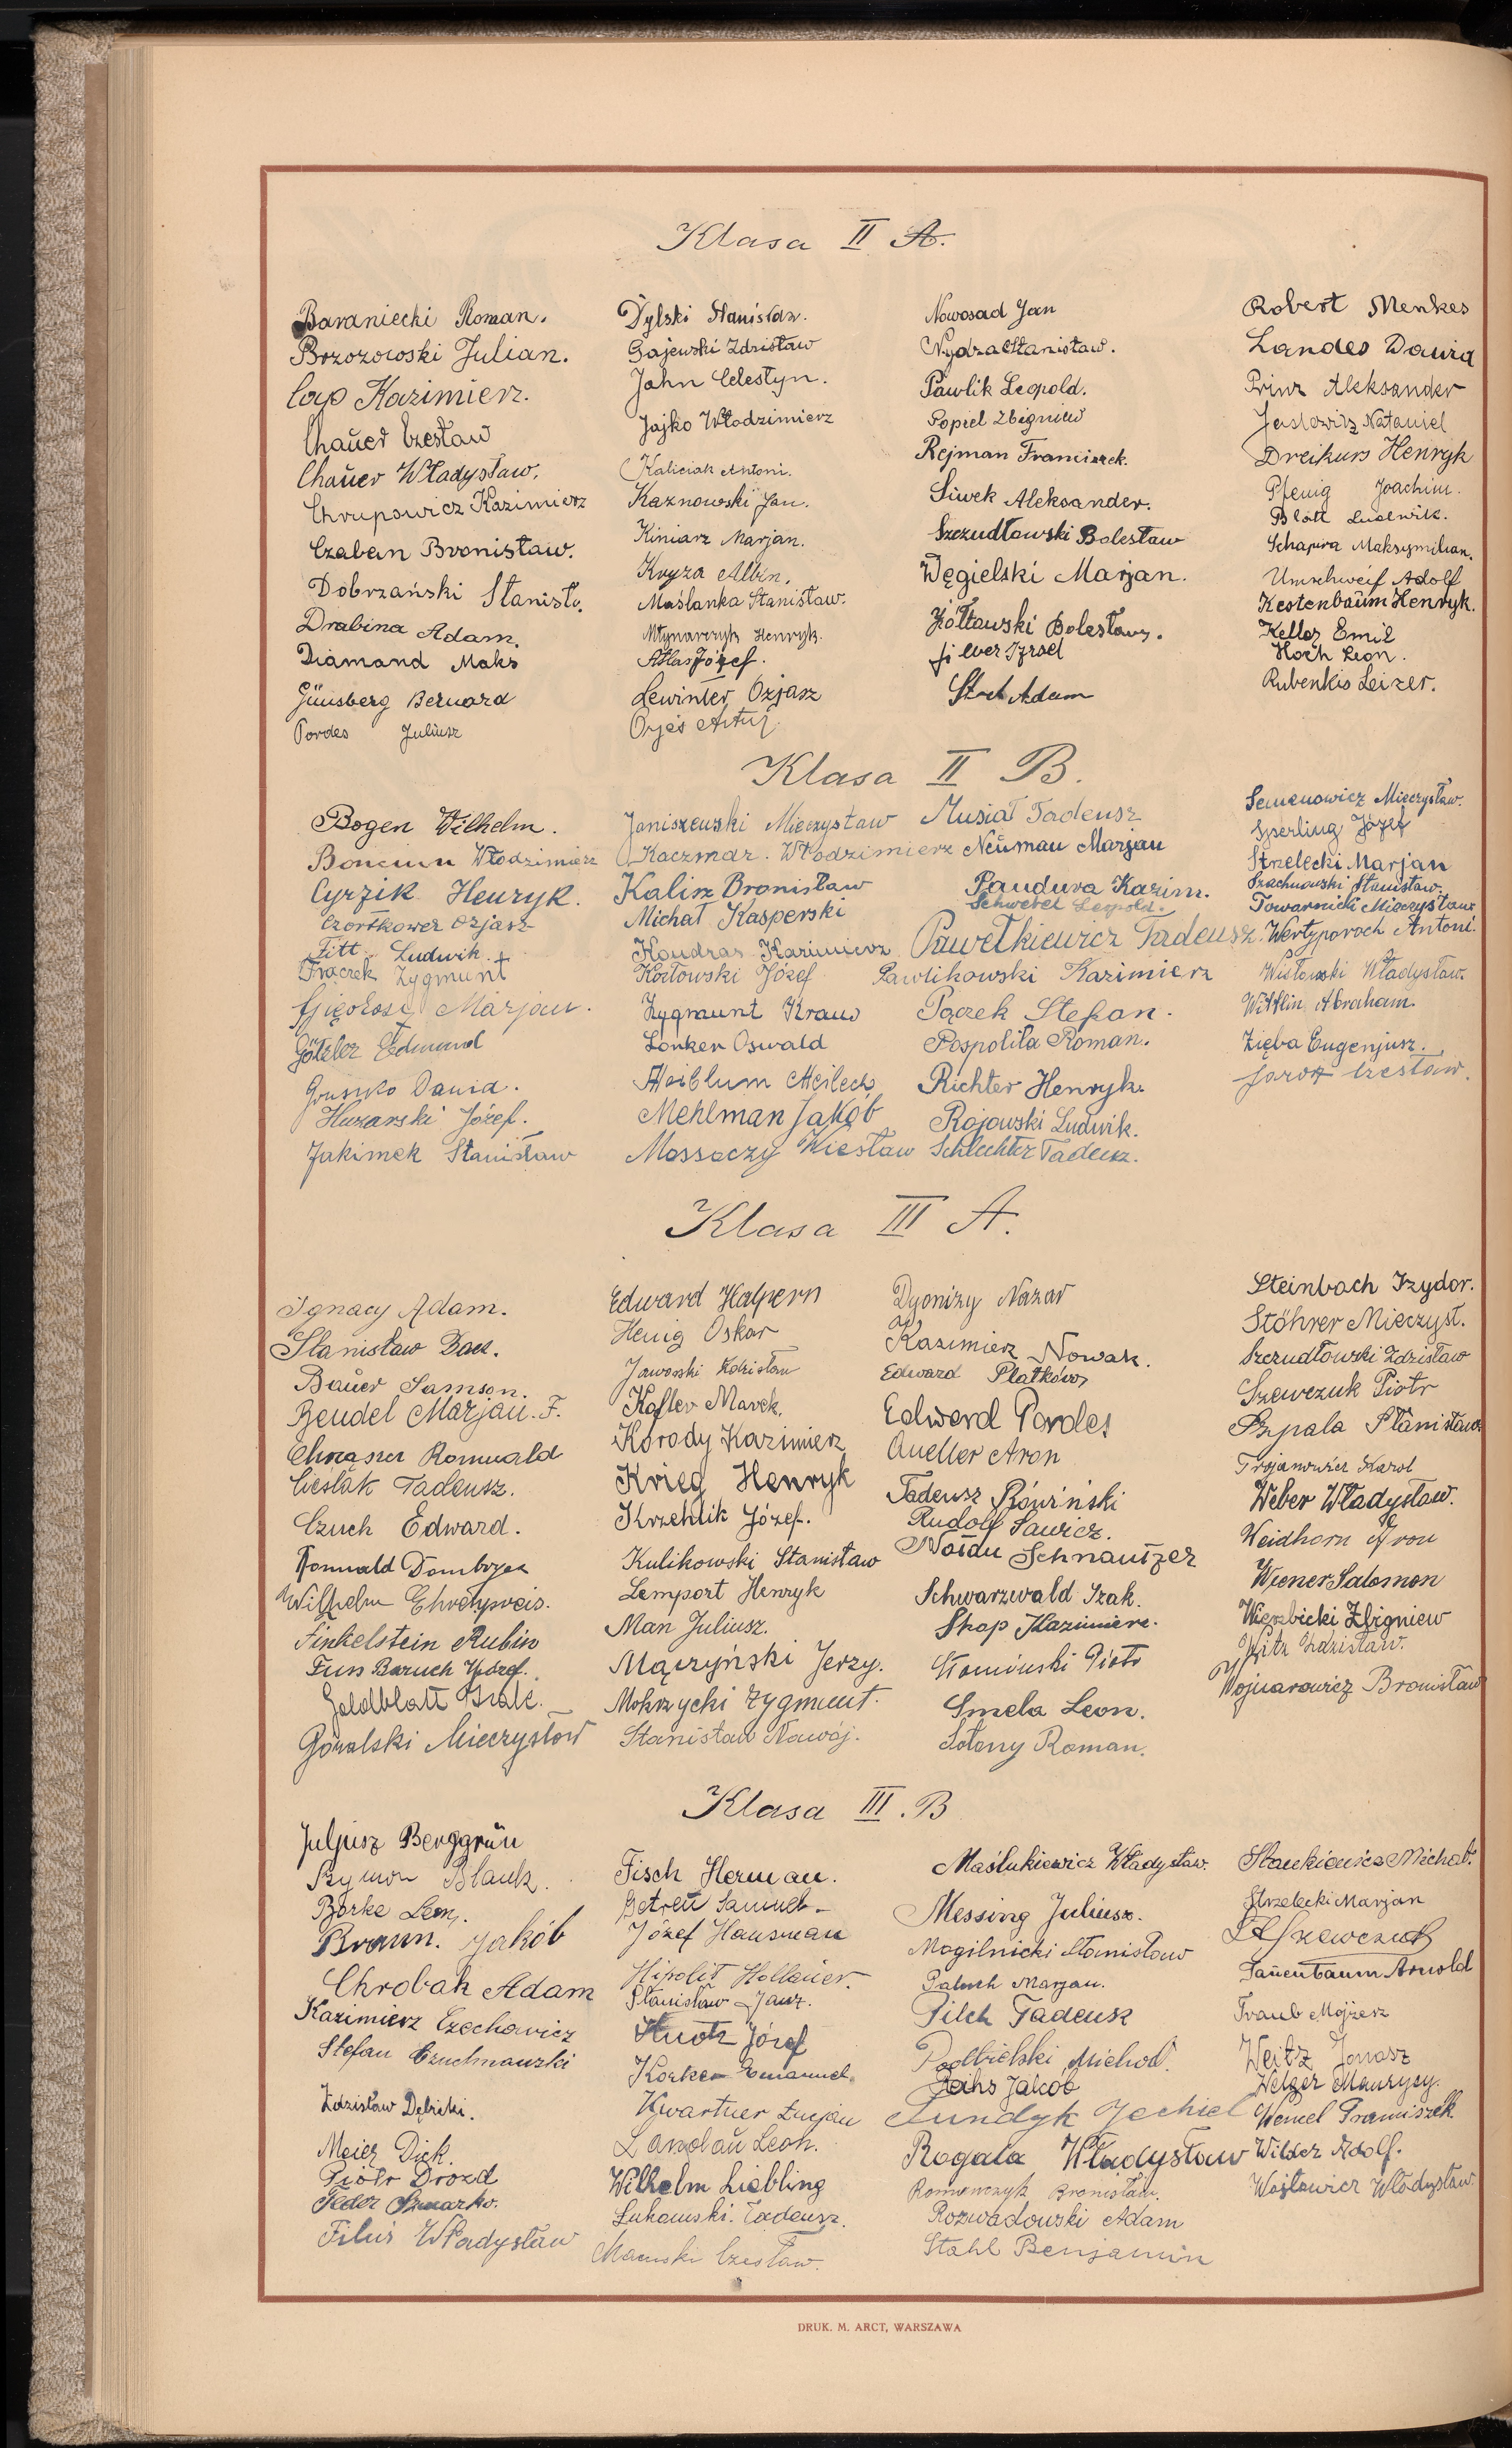 Klasa II A.
Baraniecki Roman.
Brzozowski Julian.
Cap Kazimierz.
Chauer Czesław
Chauer Władysław.
Chrupowicz Kazimierz
Czaban Bronisław.
Dobrzański Stanisł.
Drabina Adam.
Diamand Maks
Günsberg Bernard
Pordes Juliusz
Dylski Stanisław.
Gajewski Zdzisław
Jahn Celestyn.
Jajko Włodzimierz
Kaliciak Antoni.
Kaznowski Jan.
Kiniarz Marjan.
Kryza Albin.
Maślanka Stanisław.
Młynarczyk Henryk.
Atlas Józef.
Lewinter Ozjasz
Orjes Artur
Nowosad Jan
Nydza Stanisław.
Pawlik Leopold.
Popiel Zbigniew
Rejman Franciszek.
Siwek Aleksander.
Szczudłowski Bolesław
Węgielski Marjan.
Żółtowski Bolesław.
Izrael
Adam
Robert Menkes
Landes Dawid
Prinz Aleksander
Nataniel
Dreikurs Henryk
Pfenig Joachim.
Blatt Ludewik.
Schapira Maksymilian.
Umschweif Adolf
Kestenbaum Henryk.
Keller Emil
Hoch Leon.
Rubenkis Leizer.
Klasa II B.
Bogen Wilhelm.
Włodzimierz
Cyrzik Henryk.
Czortkower Ozjasz
Fitt Ludwik.
Frączek Zygmunt
Marjan.
Edmund
Gruszko Dawid.
Huzarski Józef.
Jakimek Stanisław
Janiszewski Mieczysław
Kaczmar. Włodzimierz
Kalisz Bronisław
Michał Kasperski
Kondras Kazimierz
Kozłowski Józef
Zygmunt Kraus
Lonker Oswald
Meilech
Mehlman Jakób
Mossoczy Wiesław
Musiał Tadeusz
Neuman Marjan
Pandura Kazim.
Schwebel Leopold.
Pawełkiewicz Tadeusz.
Pawlikowski Kazimierz
Pączek Stefan.
Pospolita Roman.
Richter Henryk.
Rojowski Ludwik.
Schlechter Tadeusz.
Semenowicz Mieczysław.
Sperling Józef
Strzelecki Marjan
Szachnowski Stanisław.
Towarnicki Mieczysław
Wertyporoch Antoni.
Wisłowski Władysław.
Wittlin Abraham.
Zięba Eugenjusz.
Jarosz Czesław.
Klasa III A.
Ignacy Adam.
Stanisław Bac.
Bauer Samson.
Bendel Marjan. F.
Chrząszcz Romuald
Cieślak Tadeusz.
Czuch Edward.
Romuald
Wilhelm Ehrlypreis.
Finkelstein Rubin
Fuss Baruch Józef.
Goldblatt Izak.
Góralski Mieczysław
Edward Halpern
Henig Oskar
Jaworski Zdzisław
Kafler Marek.
Korody Kazimierz
Krieg Henryk
Krzehlik Józef.
Kulikowski Stanisław
Lemport Henryk
Man Juliusz.
Mączyński Jerzy.
Mokrzycki Zygmunt.
Stanisław Nawój.
Dyonizy Nazar
Kazimierz Nowak.
Edward
Edward Pordes
Queller Aron
Tadeusz Rówiński
Rudolf Sawicz.
Schnautzer
Schwarzwald Izak.
Skop Kazimierz.
Słomiński Piotr
Smela Leon.
Sołony Roman.
Steinbach Izydor.
Stöhrer Mieczysł.
Szczudłowski Zdzisław
Szewczuk Piotr
Szpala Stanisław.
Trojanowicz Karol
Weber Władysław.
Weidhorn Aron
Wiener Salomon
Wierzbicki Zbigniew
Witz Zdzisław.
Wojnarowicz Bronisław
Klasa III. B
Juljusz Berggrün
Szymon Blank.
Borke Leon.
Braun. Jakób
Chrobak Adam
Kazimierz Czechowicz
Stefan Czuchnowski
Zdzisław Dębicki.
Meier Dick.
Piotr Drozd
Fedor
Filus Władysław
Fisch Herman.
Getreu Samuel.
Józef Hausman
Hipolit Hollauer.
Stanisław Janz.
Knotz Józef
Korker Emanuel.
Kwartner Łucjan
Landau Leon.
Wilhelm Liebling
Łukawski. Tadeusz.
Mauski Czesław.
Maślukiewicz Władysław.
Messing Juliusz.
Mogilnicki Stanisław
Paluch Marjan.
Pilch Tadeusz
Podbielski Michał.
Jakob
Jechiel
Rogala Władysław
Romanczyk Bronisław.
Rozwadowski Adam
Stahl Benjamin
Stankiewicz Michał.
Strzelecki Marjan
Szewczuk
Tanenbaum Arnold
Traub Mojżesz
Weitz Jonasz
Welger Maurycy.
Wencel Franciszek
Wilder Adolf.
Wojtowicz Władysław.
DRUK. M. ARCT, WARSZAWA